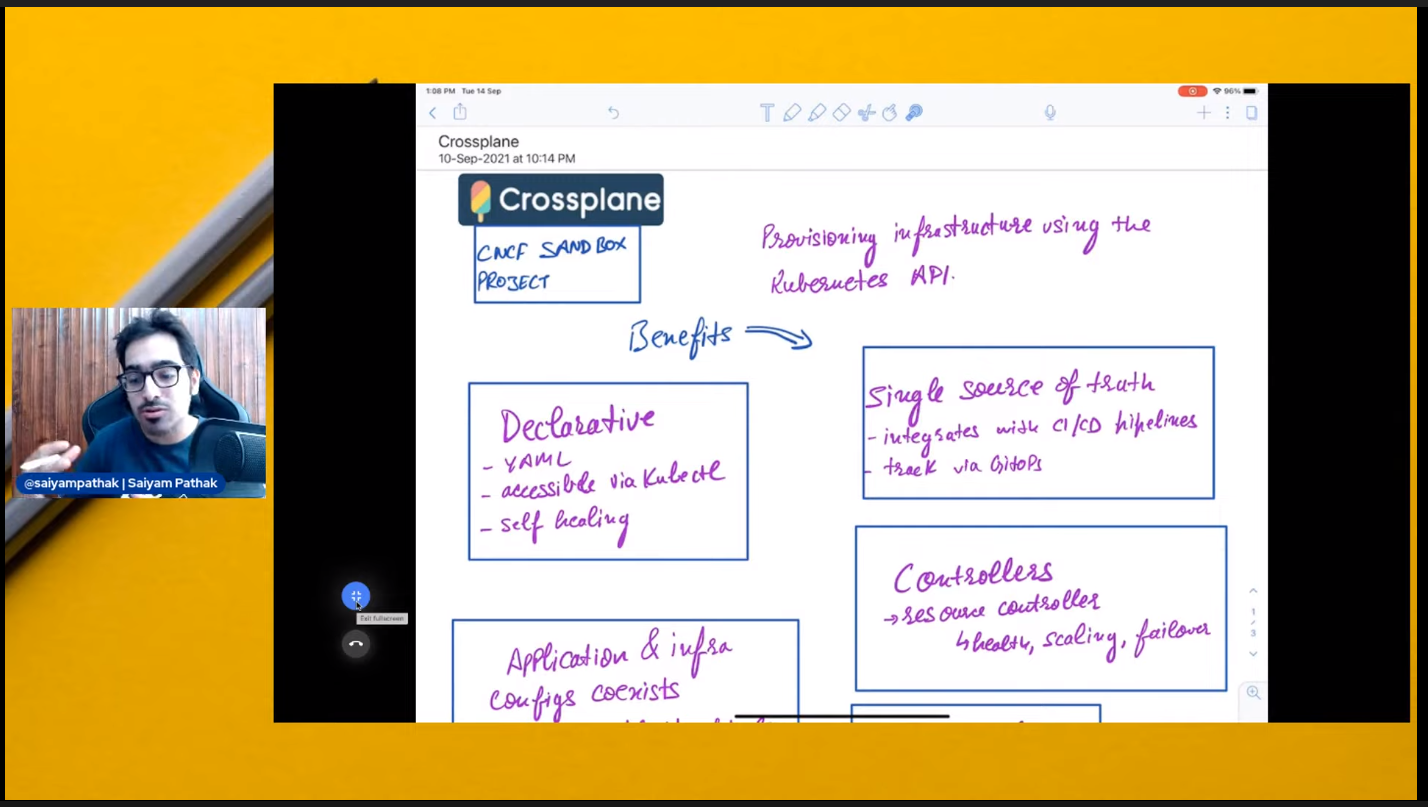 1:08 PM Tue 14 Sep
96%
Crossplane
10-Sep-2021 at 10:14 PM
Crossplane
CNCF SANDBOX
PROJECT
Provisioning infrastructure using the
Kubernetes API.
Benefits
Declarative
- YAML
- accessible via Kubectl
- self healing
Single source of truth
- integrates with CI/CD pipelines
- track via GitOPs
Controllers
→ resource controller
↳ health, scaling, failover
Application & infra
configs coexists
1
/
3
@saiyampathak | Saiyam Pathak
Exit fullscreen